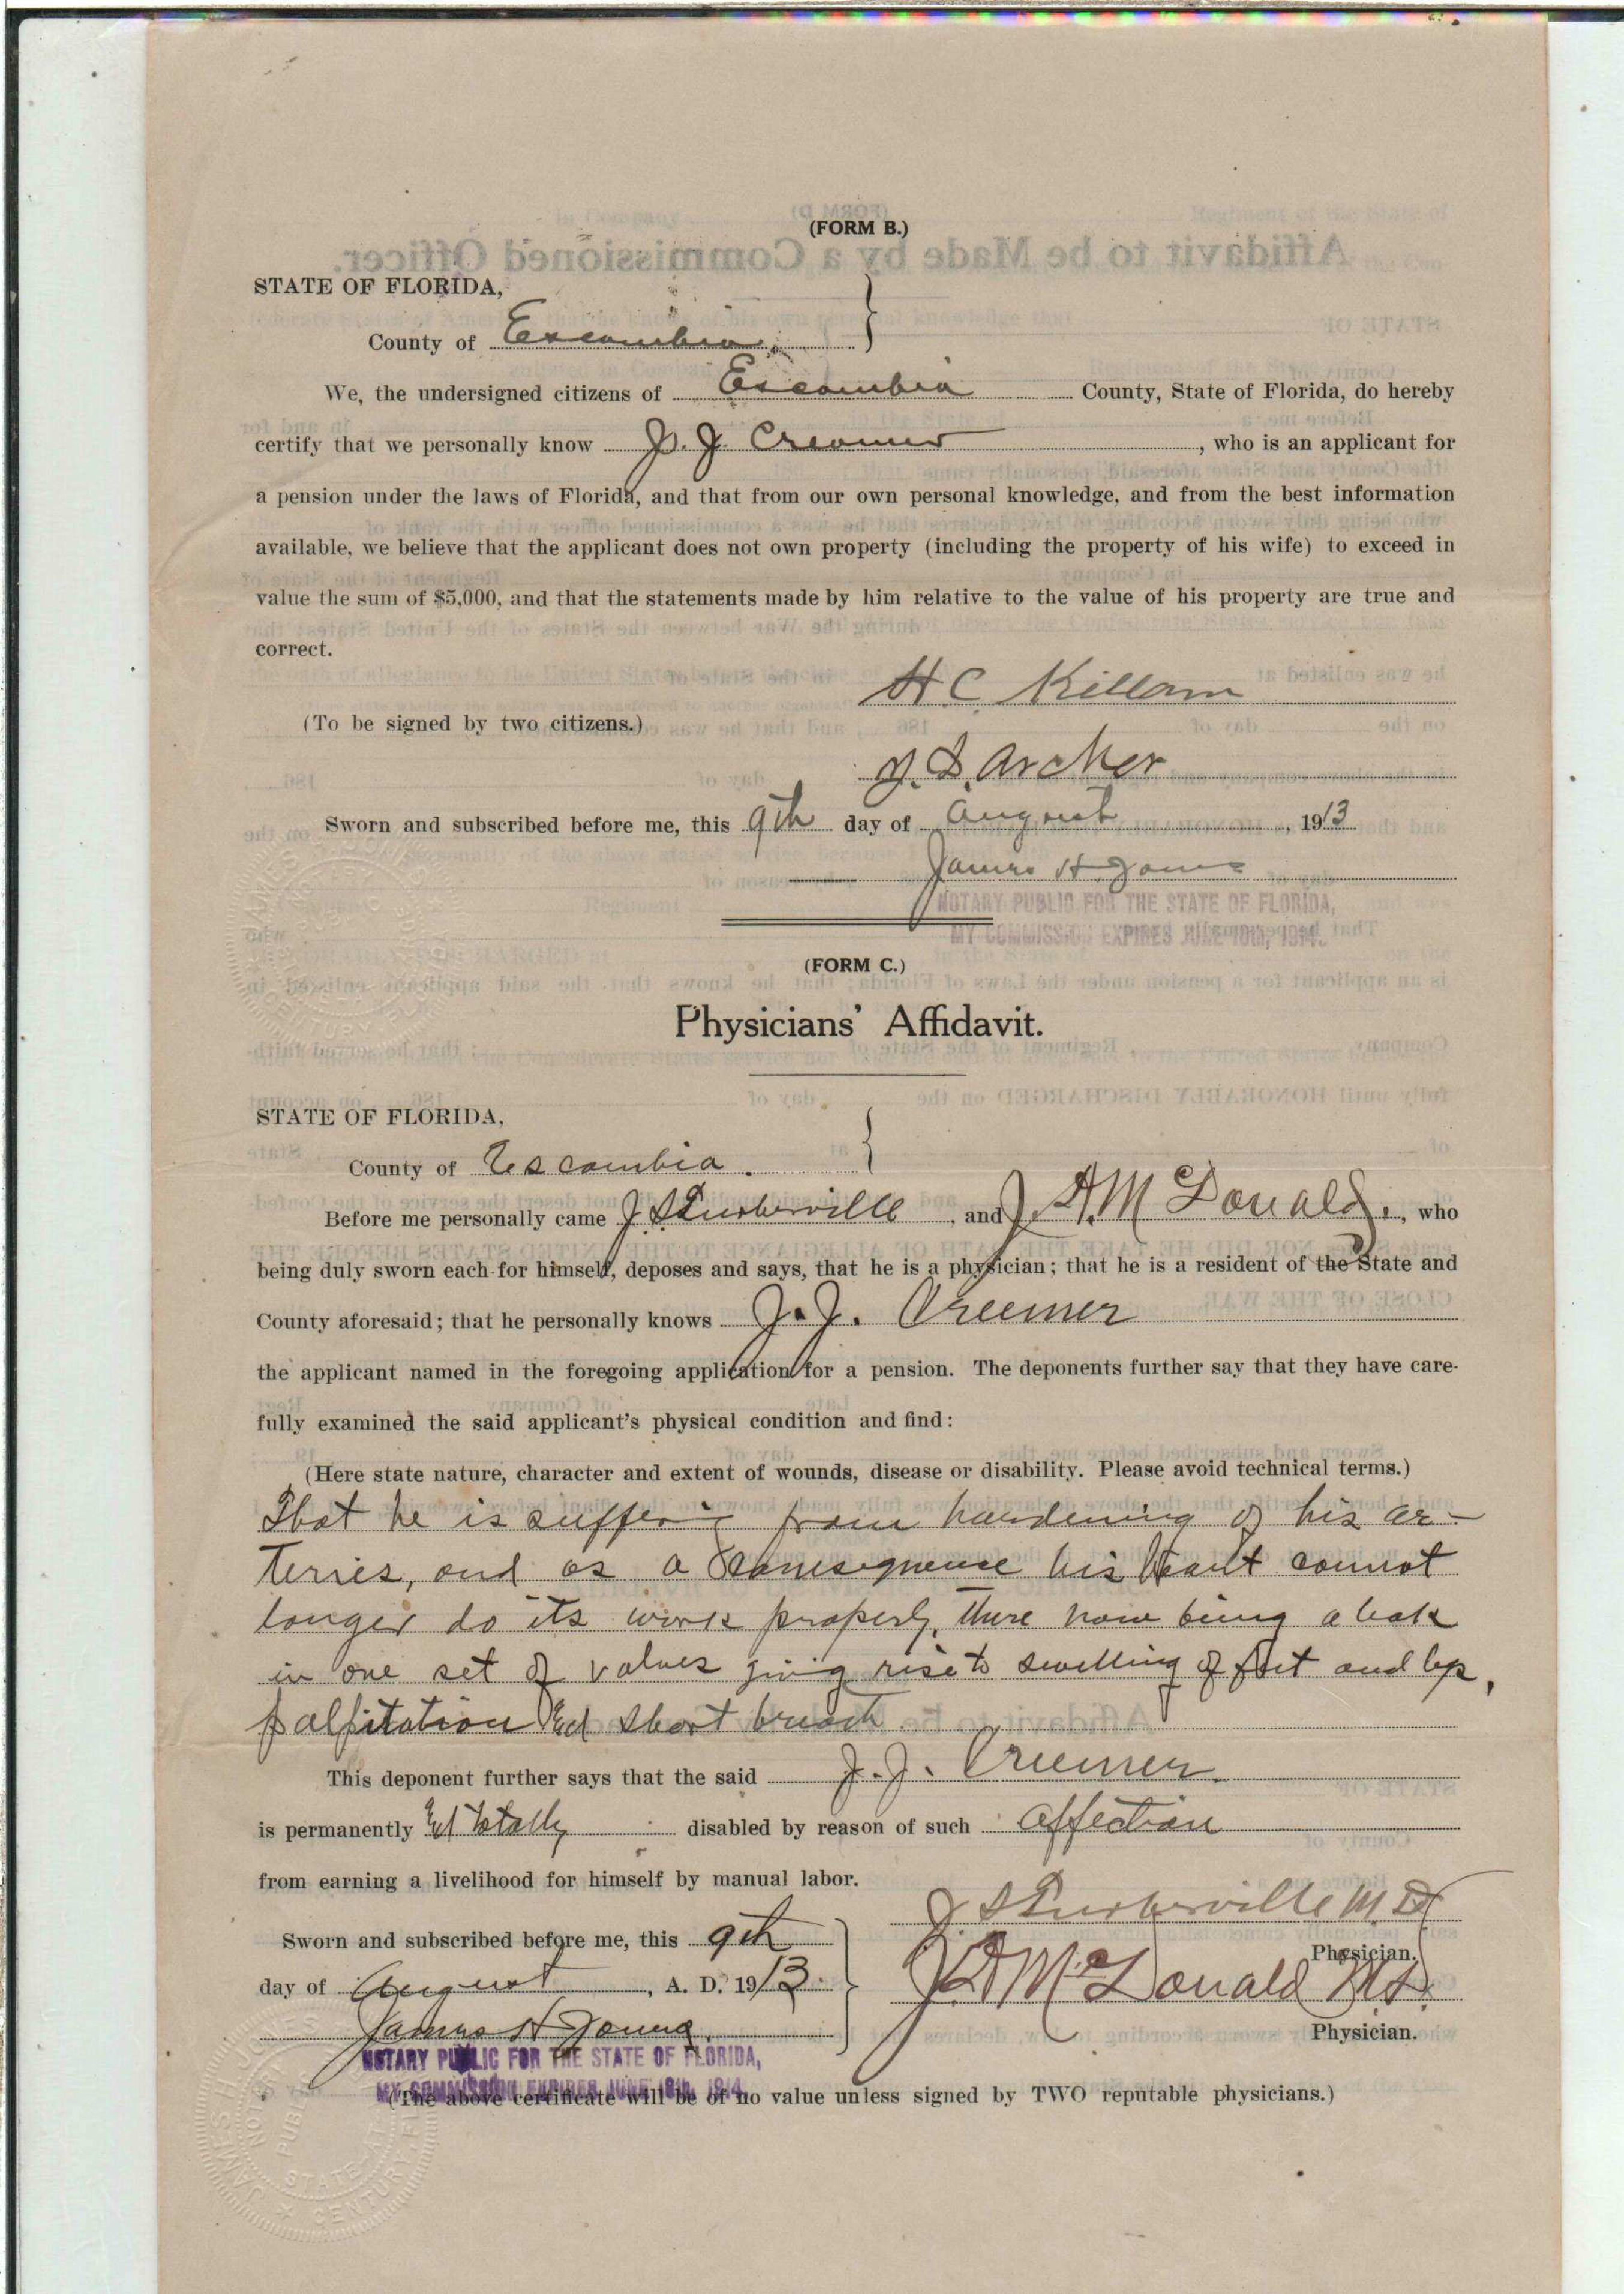 (FORM B.)
STATE OF FLORIDA,
County of Escambia
We, the undersigned citizens of Escambia County, State of Florida, do hereby
certify that we personally know J. J. Creamer, who is an applicant for
a pension under the laws of Florida, and that from our own personal knowledge, and from the best information
available, we believe that the applicant does not own property (including the property of his wife) to exceed in
value the sum of $5,000, and that the statements made by him relative to the value of his property are true and
correct.
H C Killam
(To be signed by two citizens.)
J. S. Archer
Sworn and subscribed before me, this 9th day of August, 1913
James H Jones
NOTARY PUBLIC FOR THE STATE OF FLORIDA,
MY COMMISSION EXPIRES JUNE 10th, 1914.
(FORM C.)
Physicians' Affidavit.
STATE OF FLORIDA,
County of Escambia.
Before me personally came J S Turberville, and J. A. McDonald., who
being duly sworn each for himself, deposes and says, that he is a physician; that he is a resident of the State and
County aforesaid; that he personally knows J. J. Creemer
the applicant named in the foregoing application for a pension. The deponents further say that they have care-
fully examined the said applicant's physical condition and find:
(Here state nature, character and extent of wounds, disease or disability. Please avoid technical terms.)
That he is suffering from hardening of his ar-
terries, and as a consequence his heart cannot
longer do its work properly, there now being a leak
in one set of valves giving rise to swelling of feet and legs,
palpitation and short breath
This deponent further says that the said J. J. Creemer.
is permanently and totally disabled by reason of such affection
from earning a livelihood for himself by manual labor.
J S Turberville M.D
Sworn and subscribed before me, this 9th
Physician.
day of August, A. D. 1913.
J. A. McDonald M.D.
James H Jones.
Physician.
NOTARY PUBLIC FOR THE STATE OF FLORIDA,
MY COMMISSION EXPIRES JUNE 10th, 1914.
(The above certificate will be of no value unless signed by TWO reputable physicians.)